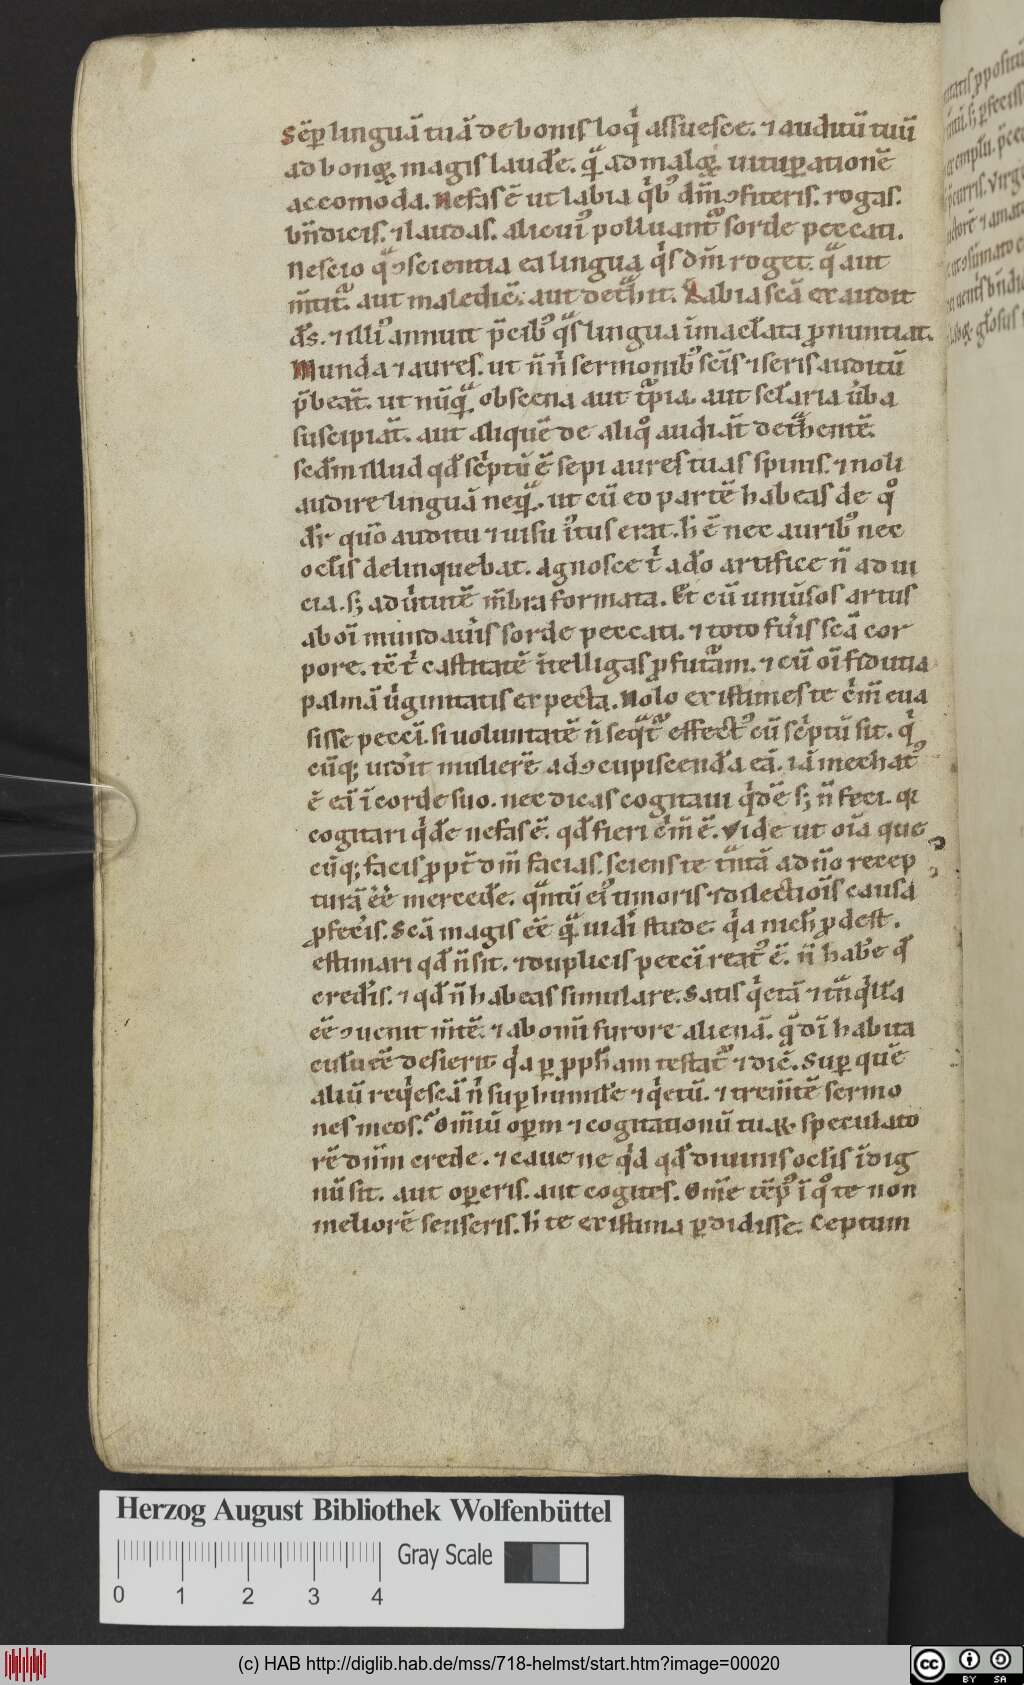 Sēp linguā tuā de bonis loqͥ assuesce. ⁊ auditū tuū
ad bonoꝝ magis laudē. qᷓ ad maloꝝ uituꝑationē
accomoda. Nefas ē ut labia qͥb; dn̄m ꝯfiteris. rogas.
bn̄dicis. ⁊ laudas. alicuiꝰ polluant᷑ sorde peccati.
Nescio qᷓ ꝯscientia ea lingua qͥs dn̄m roget. qᷓ aut
m̄tit᷑. aut maledic̄. aut det̾hit. Labia sc̄a exaudit
ds̄. ⁊ illiꝰ annuit p̄cibꝰ qᷓs lingua īmacl̄ata ꝓnuntiat.
Munda ⁊ aures. ut n̄ nͥ sermonibꝰ scīs ⁊ seriis auditū
p̄beāt. ut nūqᷓ obscena aut t̾pia. aut sclaria ūba
suscipiāt. aut aliquē de aliqͦ audiāt det̾hentē.
sedm illud qd̄ scͥptū ē sepi aures tuas spinis. ⁊ noli
audire linguā neqᷓ. ut cū eo partē habeas de qͦ
dr̄ quō auditu ⁊ uisu iꝰtus erat. h̄ ē nec auribꝰ nec
ocl̄is delinquebat. Agnosce tͥ a dō artifice n̄ ad ui
cia. s; ad ūtutē m̄bra formata. Et cū uniūsos artus
ab oī mundaūis sorde peccati. ⁊ toto fūis sc̄a cor
pore. tē tͥ castitatē īntelligas ꝓfuturam. ⁊ cū oī fiducia
palmā ūginitatis expecta. Nolo existimes te cͥm̄ eua
sisse pecci. si uoluntatē n̄ seqᷓt᷑ effectꝰ cū scͥptū sit. qͥ
cūq; uidͥit mulierē ad ꝯcupiscendā eā. iā mechatꝰ
ē eā ī corde suo. nec dicas cogitaui qͥdē s; n̄ feci. qꝛ
cogitari qͥdē nefas ē. qd̄ fieri cͥm̄ ē. Vide ut oīa que
cūq; facis ꝓpt̄ dn̄m facias. sciens te tᷓntā ad ūo recep
turā eē mercedē. qᷓntū eiꝰ timoris ⁊ dilectiōis causa
ꝓfecͥis. Sc̄a magis eē qᷓ uidͥi stude. qͥa nich̄ ꝓdest.
estimari qd̄ n̄ sit. ⁊ duplicis pecci reatꝰ ē. n̄ habͥe qd̄
credͥis. ⁊ qd̄ n̄ habeas simulare. Satis qͥetā ⁊ tᷓnqͥllā
eē ꝯuenit m̄tē. ⁊ ab omī furore alienā. qᷓ dī habita
culū eē desierit qͥa ꝑ ꝓph̄am testat᷑ ⁊ dic̄. Suꝑ quē
aliū reqͥescā nͥ suꝑ humilē ⁊ qͥetū. ⁊ trem̄tē sermo
nes meos. Om̄iū oꝑm ⁊ cogitationū tuaꝝ speculato
rē dn̄m crede. ⁊ caue ne qͥd qd̄ diuinis ocl̄is īdig
nū sit. aut oꝑeris. aut cogites. Om̄e tēpꝰ ī qͦ te non
meliorē senseris. h̄ te existima ꝑdidisse. Ceptum
Herzog August Bibliothek Wolfenbüttel
Gray Scale
0 1 2 3 4
(c) HAB http://diglib.hab.de/mss/718-helmst/start.htm?image=00020
cc BY SA